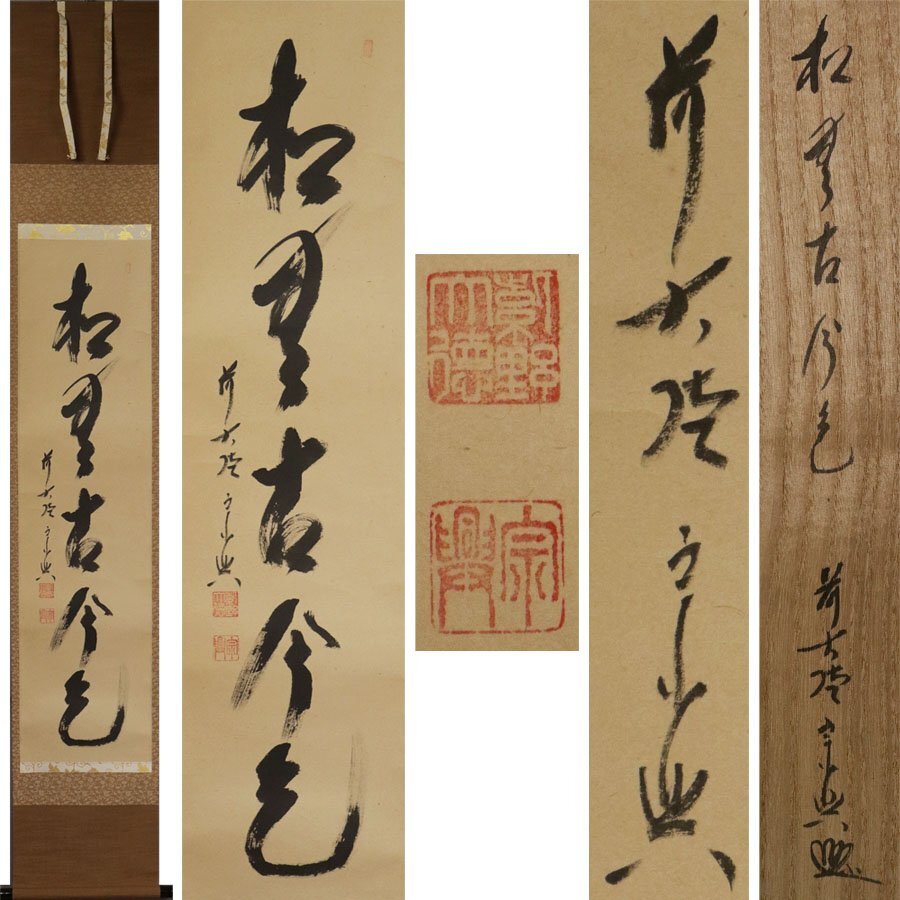 松無古今色
前大徳 宗興
松無古今色
前大徳 宗興
大徳
宗興
前大徳 宗興
松無古今色
前大徳 宗興